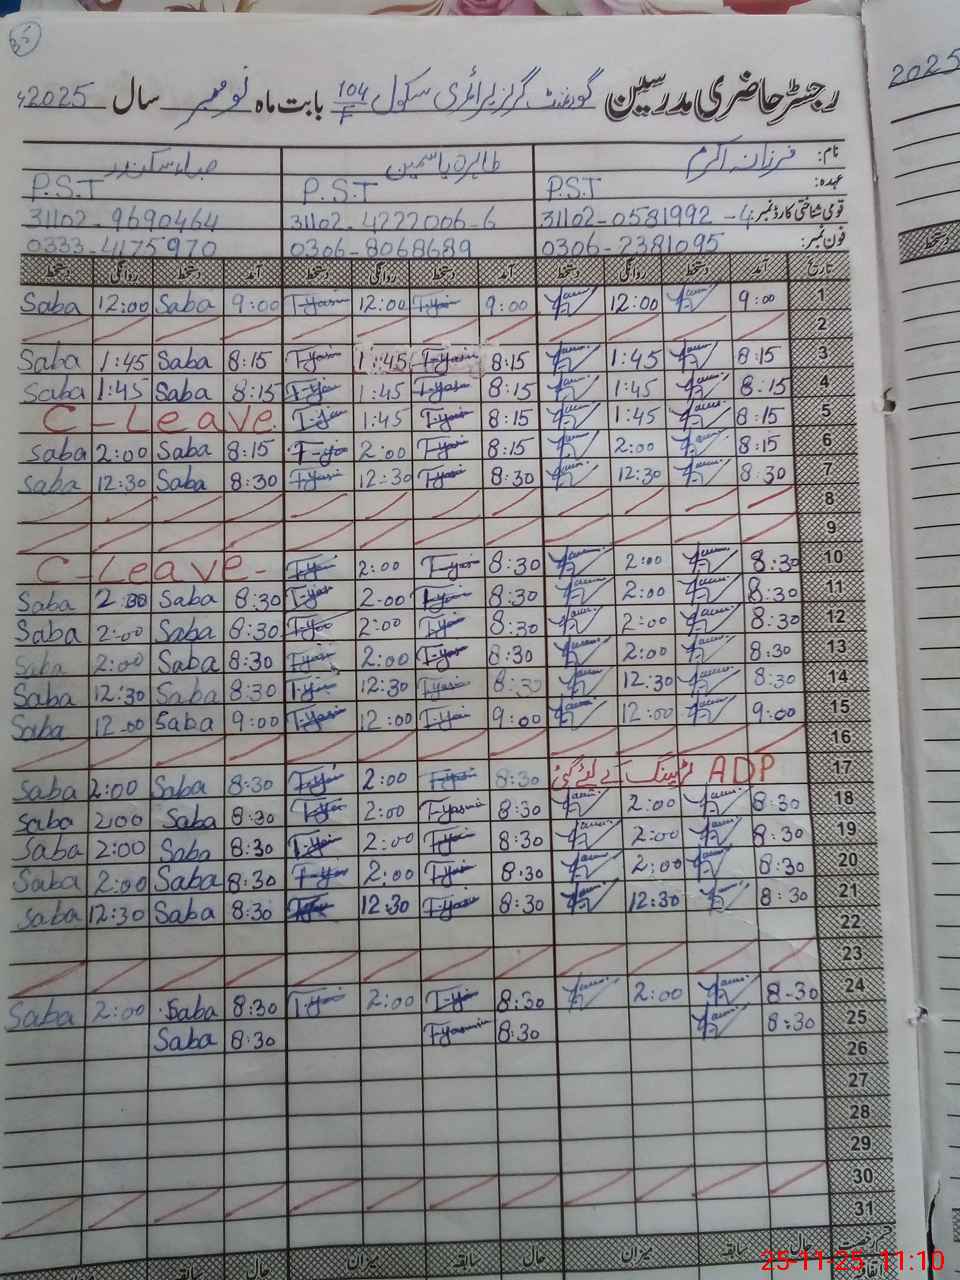 رجسٹر حاضری مدرسین گورنمنٹ گرلز پرائمری سکول 104/F بابت ماہ نومبر سال 2025ء
2025
نام: فرزانہ اکرم طاہرہ یاسمین صباء سکندر
عہدہ: P.S.T P.S.T P.S.T
قومی شناختی کارڈ نمبر: 31102-0581992-4 31102-4222006-6 31102-9690464
فون نمبر: 0306-2381095 0306-8068689 0333-4175970
تاریخ آمد دستخط روانگی دستخط آمد دستخط روانگی دستخط آمد دستخط روانگی دستخط
دستخط
1 9:00 12:00 9:00 T-Yasmin 12:00 T-Yasmin 9:00 Saba 12:00 Saba
2
3 8:15 1:45 8:15 T-Yasmin 1:45 T-Yasmin 8:15 Saba 1:45 Saba
4 8:15 1:45 8:15 T-Yasmin 1:45 T-Yasmin 8:15 Saba 1:45 Saba
5 8:15 1:45 8:15 T-Yasmin 1:45 T-Yasmin C-Leave
6 8:15 2:00 8:15 T-Yasmin 2:00 T-Yasmin 8:15 Saba 2:00 Saba
7 8:30 12:30 8:30 T-Yasmin 12:30 T-Yasmin 8:30 Saba 12:30 Saba
8
9
10 8:30 2:00 8:30 T-Yasmin 2:00 T-Yasmin C-Leave-
11 8:30 2:00 8:30 T-Yasmin 2:00 T-Yasmin 8:30 Saba 2:00 Saba
12 8:30 2:00 8:30 T-Yasmin 2:00 T-Yasmin 8:30 Saba 2:00 Saba
13 8:30 2:00 8:30 T-Yasmin 2:00 T-Yasmin 8:30 Saba 2:00 Saba
14 8:30 12:30 8:30 T-Yasmin 12:30 T-Yasmin 8:30 Saba 12:30 Saba
15 9:00 12:00 9:00 T-Yasmin 12:00 T-Yasmin 9:00 Saba 12:00 Saba
16
17 ADP ٹریننگ کے لیے گئی 8:30 T-Yasmin 2:00 T-Yasmin 8:30 Saba 2:00 Saba
18 8:30 2:00 8:30 T-Yasmin 2:00 T-Yasmin 8:30 Saba 2:00 Saba
19 8:30 2:00 8:30 T-Yasmin 2:00 T-Yasmin 8:30 Saba 2:00 Saba
20 8:30 2:00 8:30 T-Yasmin 2:00 T-Yasmin 8:30 Saba 2:00 Saba
21 8:30 12:30 8:30 T-Yasmin 12:30 8:30 Saba 12:30 Saba
22
23
24 8-30 2:00 8:30 T-Yasmin 2:00 T-Yasmin 8:30 Saba 2:00 Saba
25 8:30 8:30 T-Yasmin 8:30 Saba
26
27
28
29
30
31
قسم رخصت حال سابقہ میزان حال سابقہ میزان حال سابقہ
اتفاقیہ
25-11-25 11:10